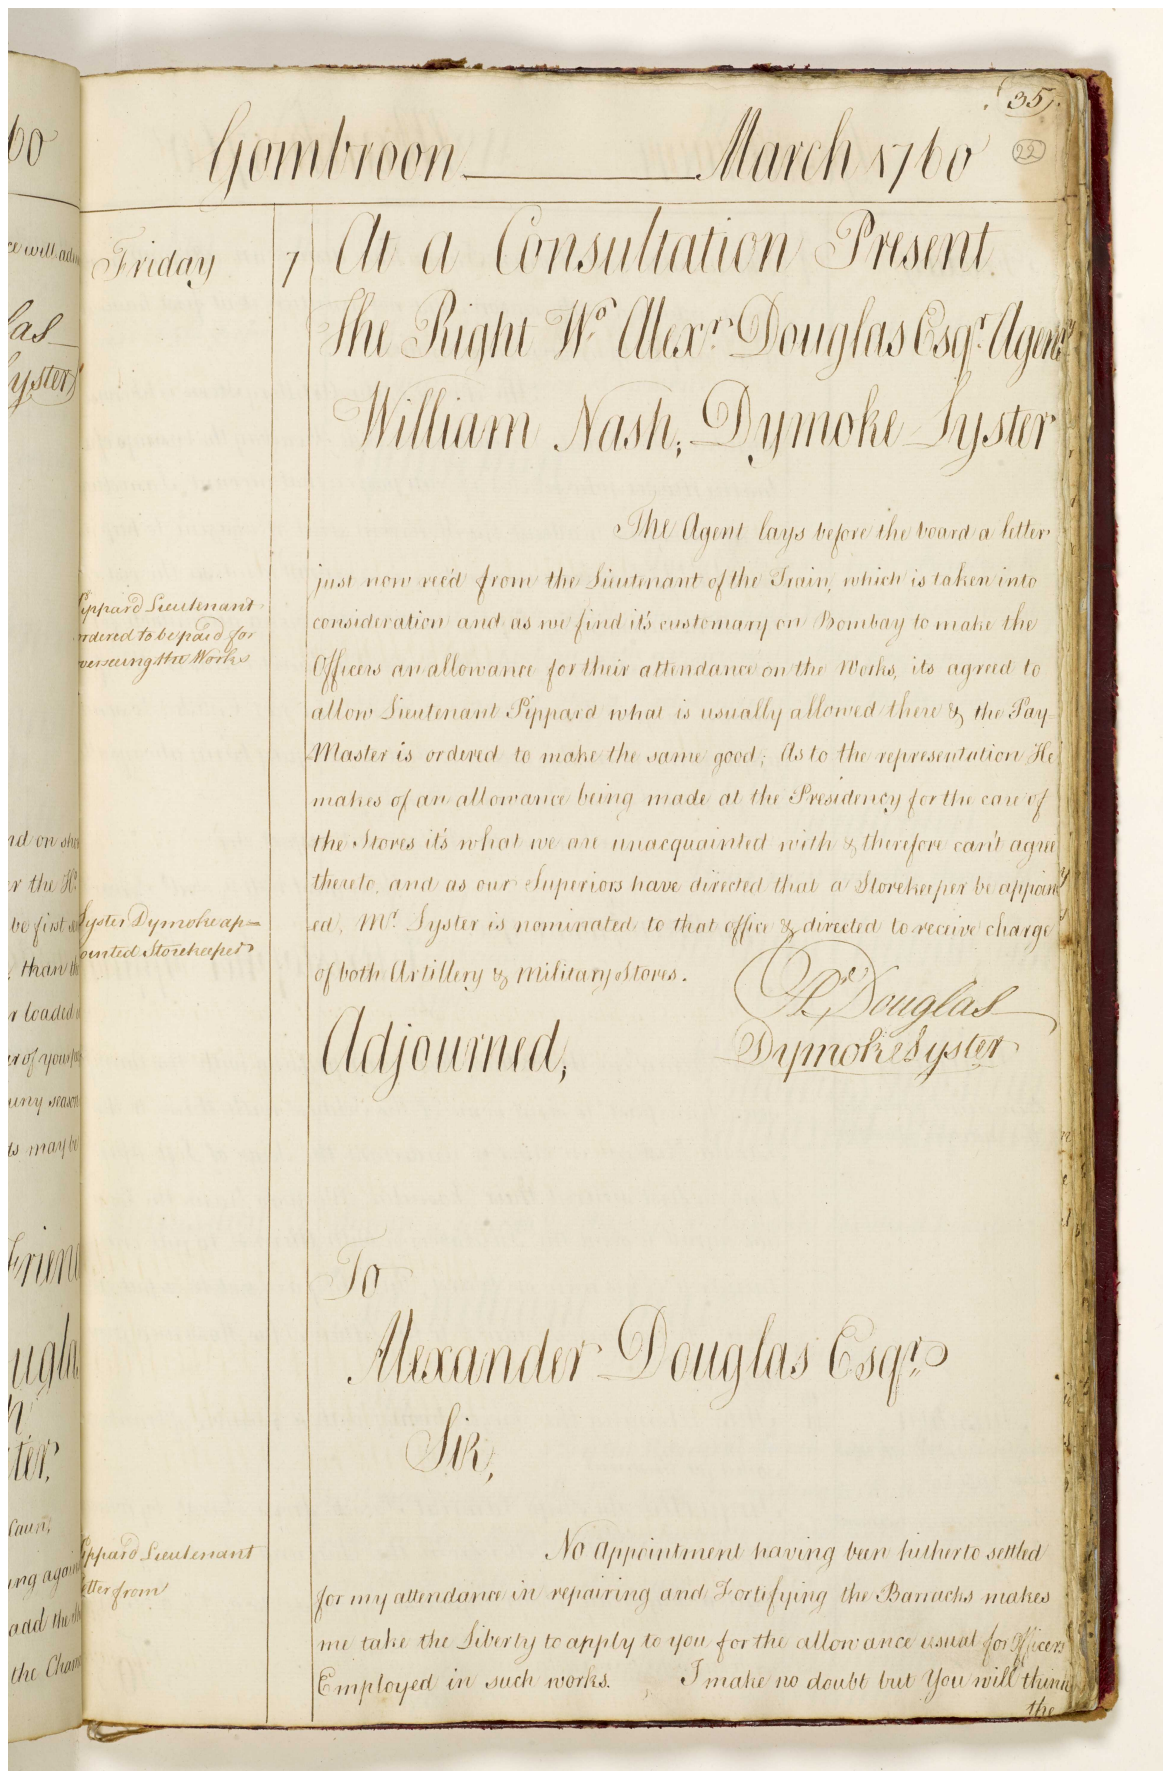 (35).
22
Gombroon March 1760
Friday 7 At a Consultation Present
The Right Wo. Alexr. Douglas Esqr. Agent
William Nash, Dymoke Lyster
The Agent lays before the board a letter
just now rec'd from the Lieutenant of the Train, which is taken into
Pippard Lieutenant
ordered to be paid for
overseeing the Works
consideration and as we find it's customary on Bombay to make the
Officers an allowance for their attendance on the Works, its agreed to
allow Lieutenant Pippard what is usually allowed there & the Pay
Master is ordered to make the same good; As to the representation He
makes of an allowance being made at the Presidency for the care of
the Stores it's what we are unacquainted with & therefore can't agree
thereto, and as our Superiors have directed that a Storekeeper be appoint
Lyster Dymoke ap=
pointed Storekeeper
ed, Mr. Lyster is nominated to that office & directed to receive charge
of both Artillery & Military Stores.
Ar Douglas
Dymoke Lyster
Adjourned,
To
Alexander Douglas Esqr.
Sir,
Pippard Lieutenant
letter from
No appointment having been hitherto settled
for my attendance in repairing and Fortifying the Barracks makes
me take the Liberty to apply to you for the allowance usual for Officers
Employed in such works. I make no doubt but You will think
the